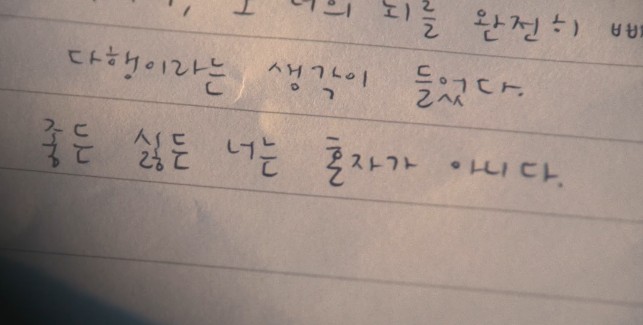 너의 뇌를 완전히
다행이라는 생각이 들었다.
좋든 싫든 너는 혼자가 아니다.